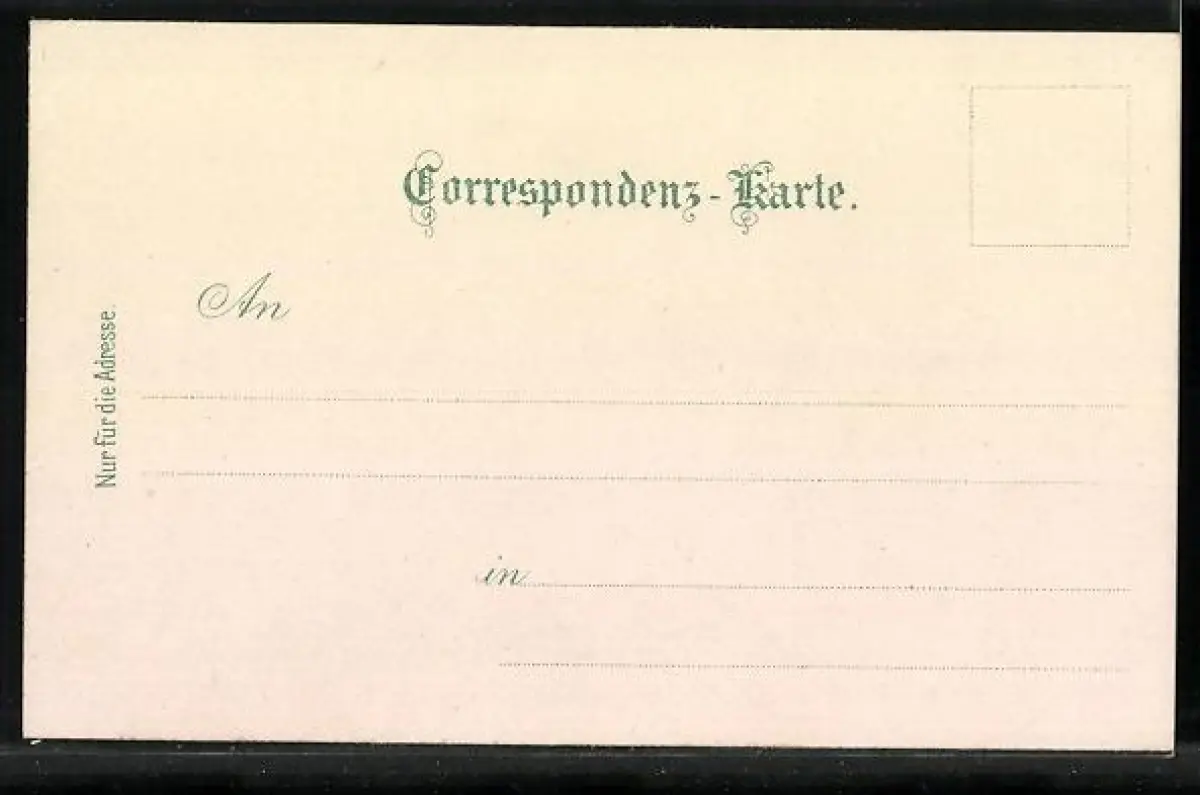 Correspondenz-Karte.
An
Nur für die Adresse.
in